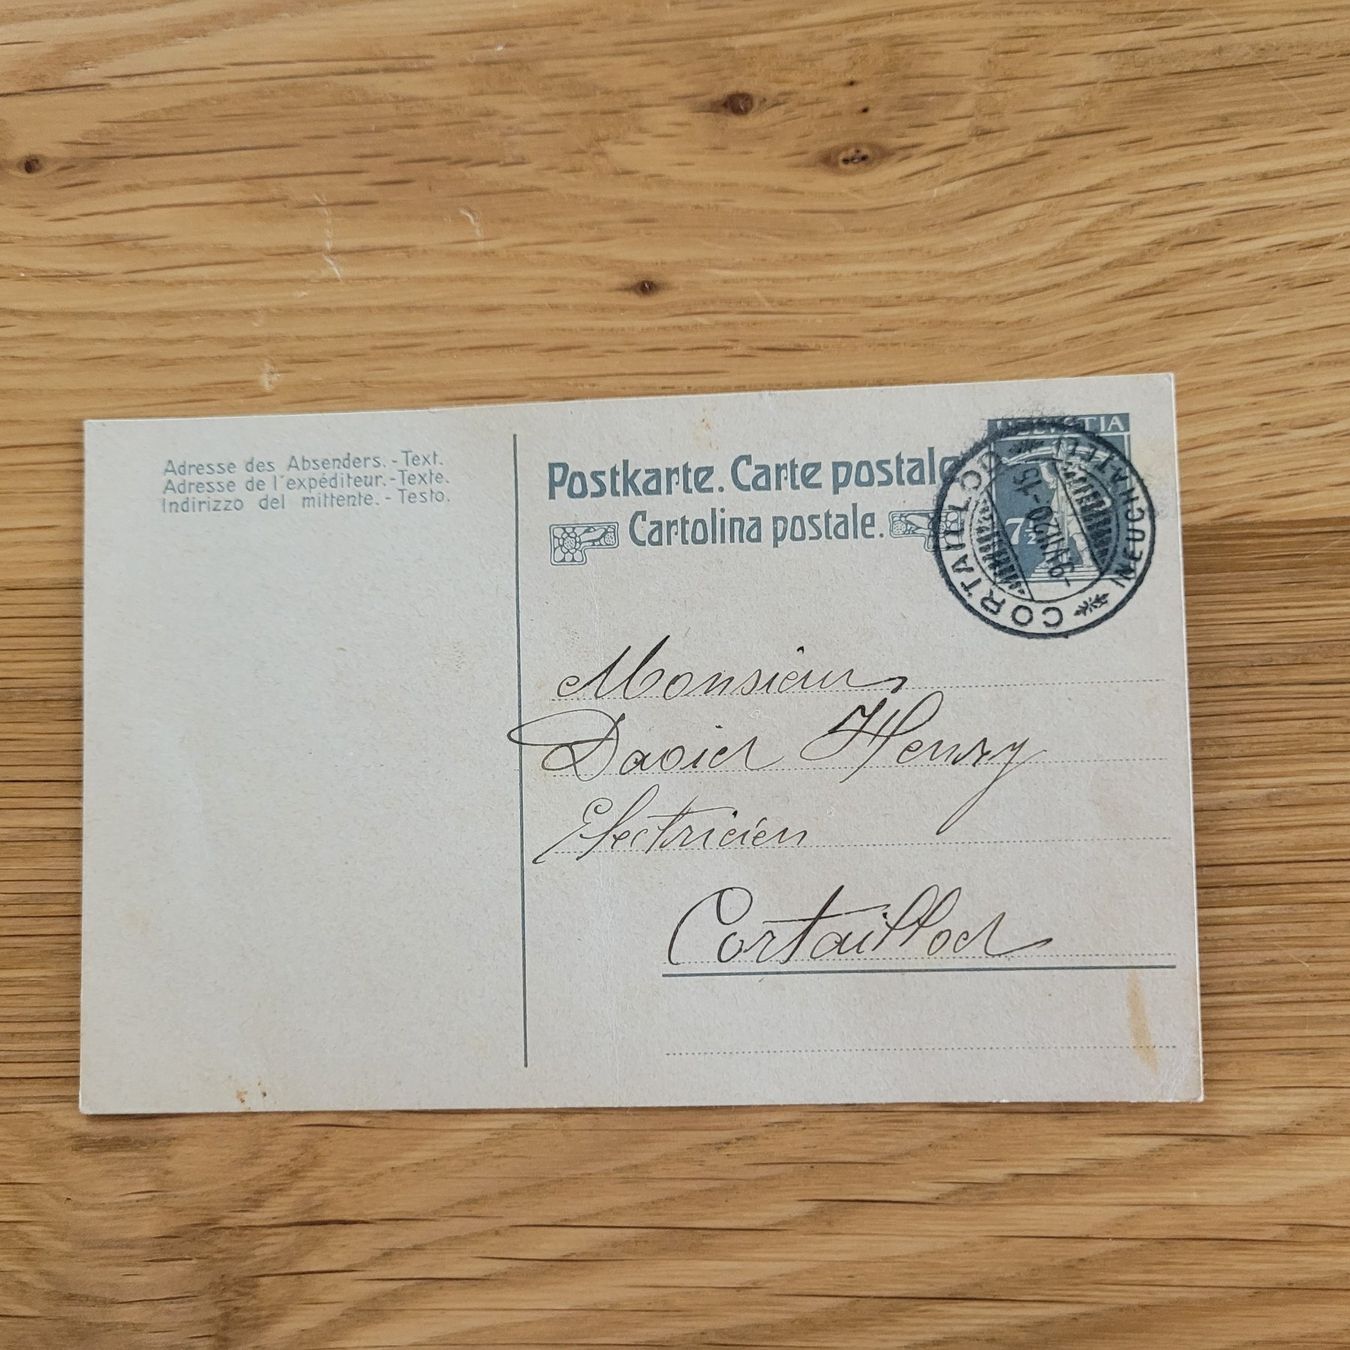 Adresse des Absenders. - Text.
Adresse de l'expéditeur. - Texte.
Indirizzo del mittente. - Testo.
Postkarte. Carte postale
Cartolina postale.
HELVETIA
7½
CORTAILLOD
(NEUCHATEL)
Monsieur
David Henry
Electricien
Cortaillod